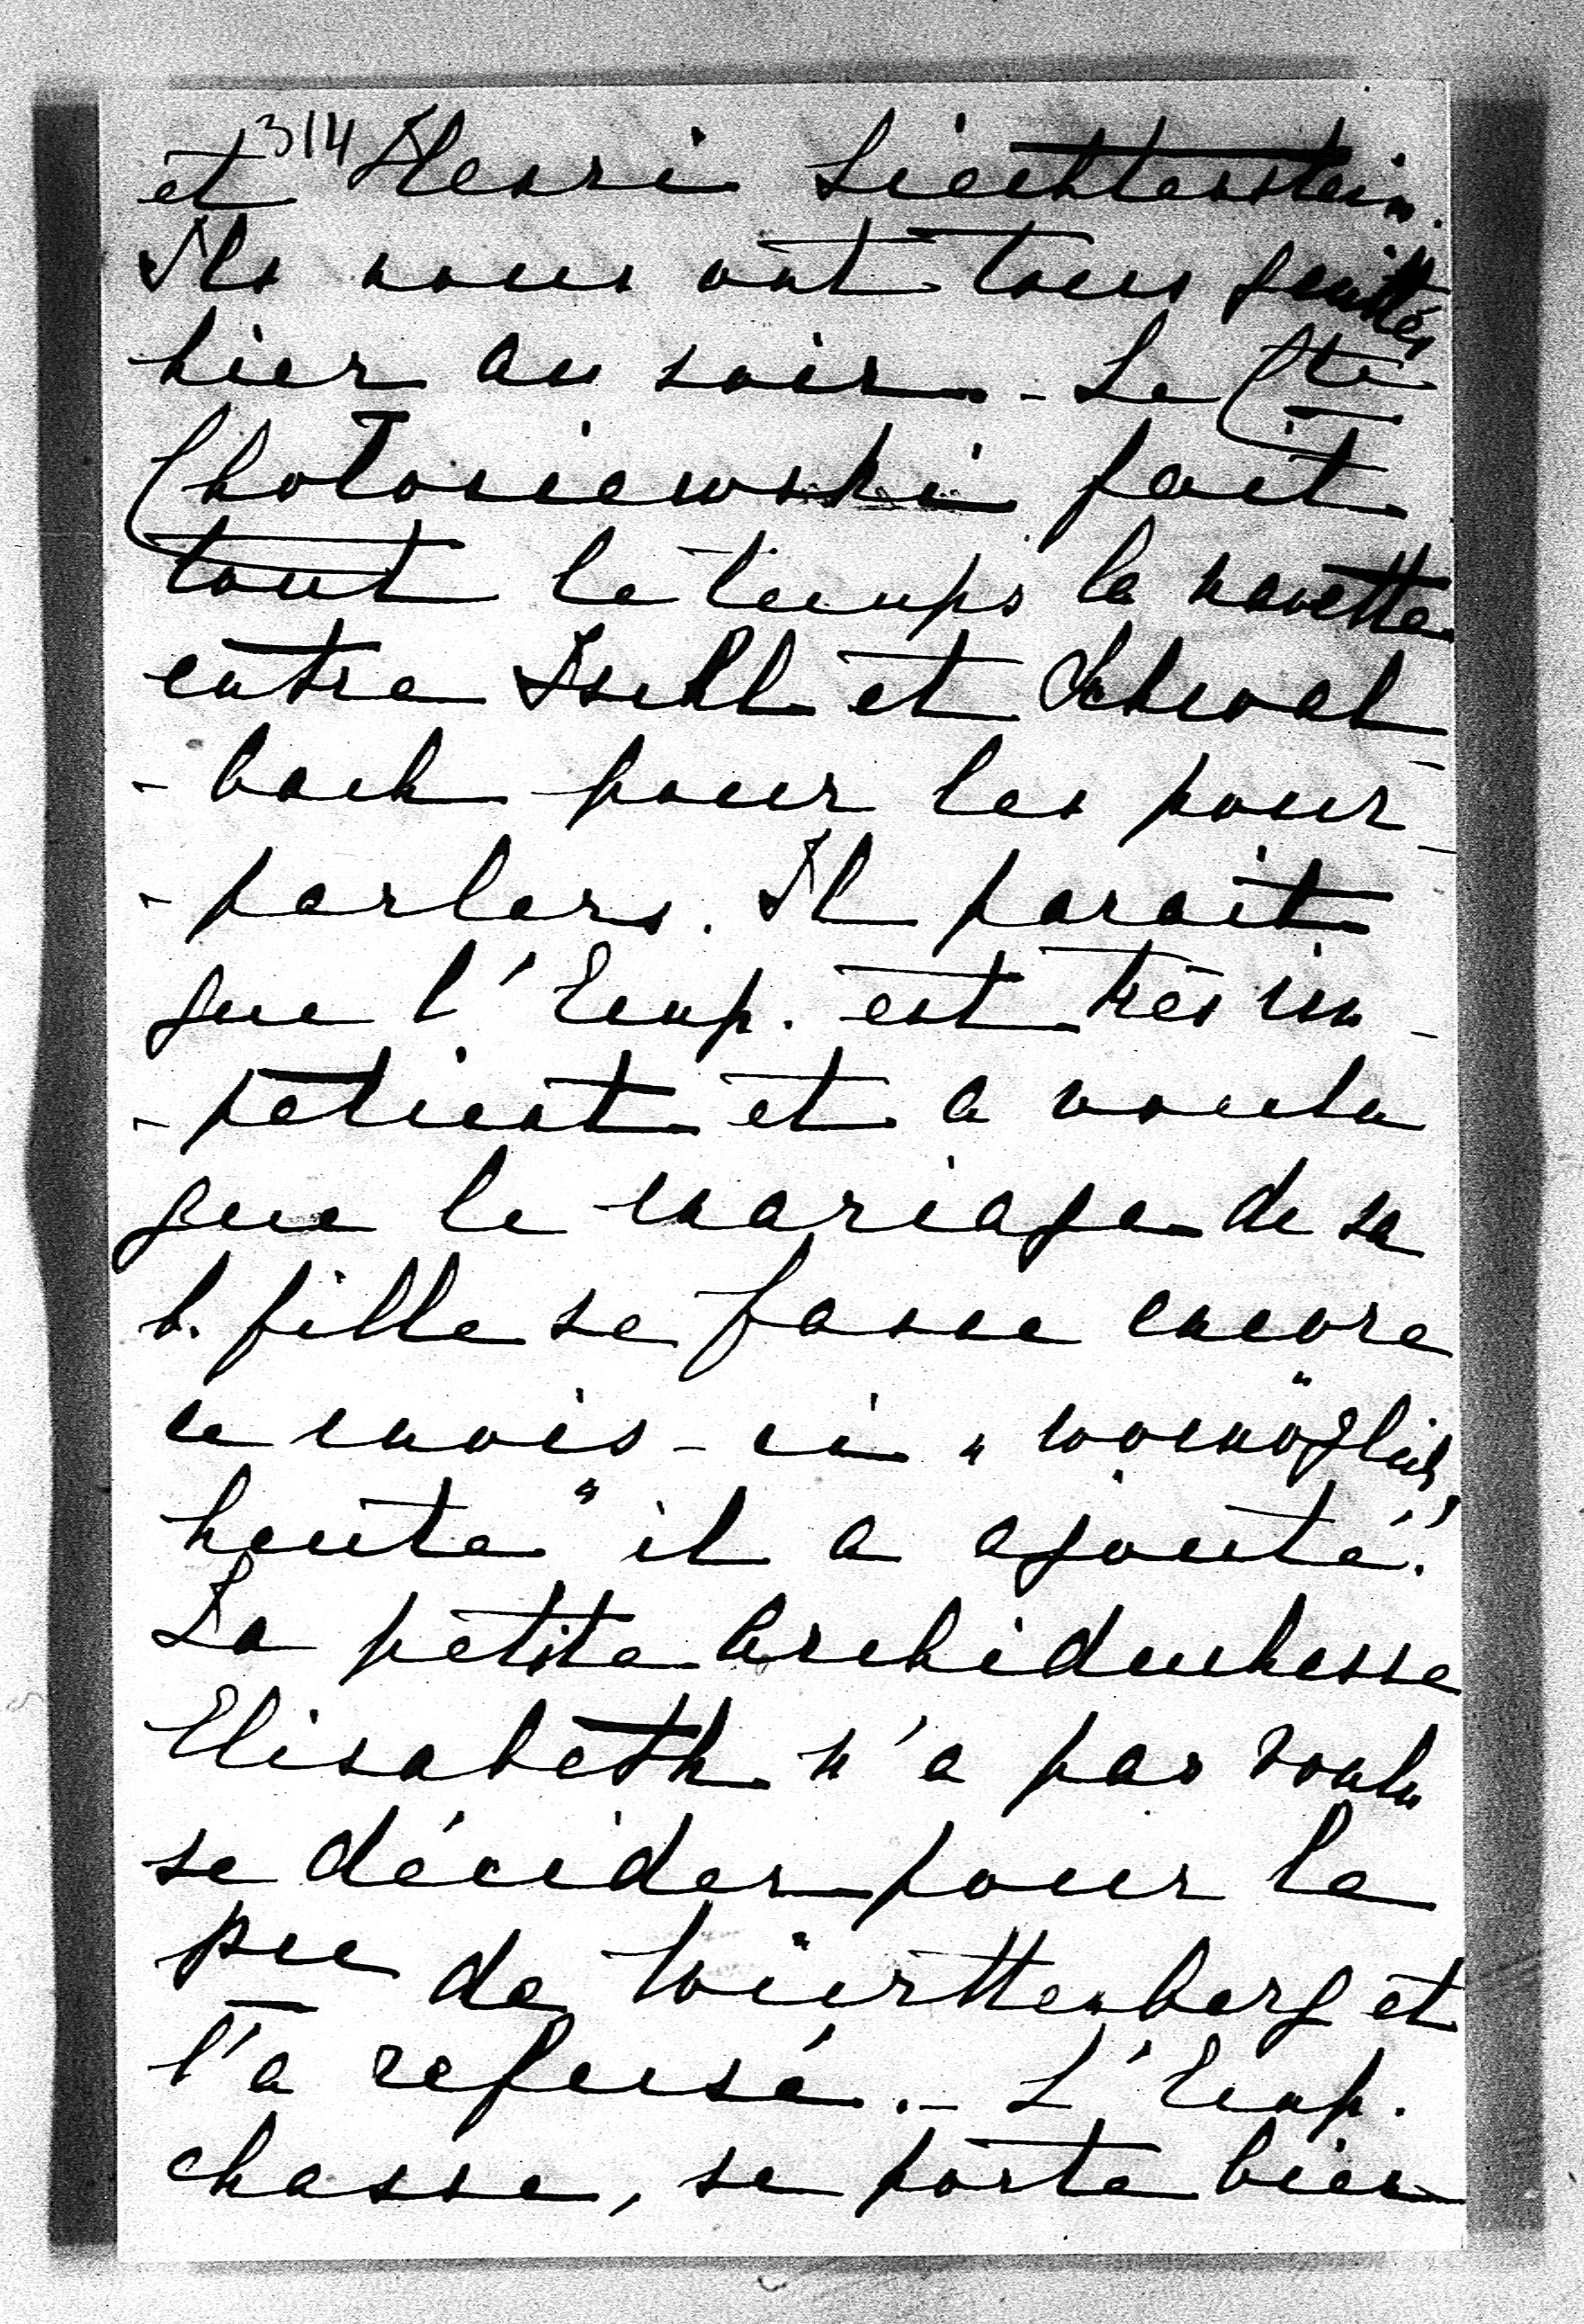 314
et Henri Liechtenstein.
Ils nous ont tous quittés
hier au soir. - Le Cte
Choloniewski fait
tout le temps la navette
entre Ischl et Schwal
- bach pour les pour-
- parlers. Il parait
que l'Emp. est très im-
- patient et a voulu
que le mariage de sa
b. fille se fasse encore
ce mois-ci „womöglich
heute" il a ajouté!
La petite Archiduchesse
Elisabeth n'a pas voulu
se décider pour le
pce de Würrttenberg et
l'a refusé. - L'Emp.
chasse, se porte bien